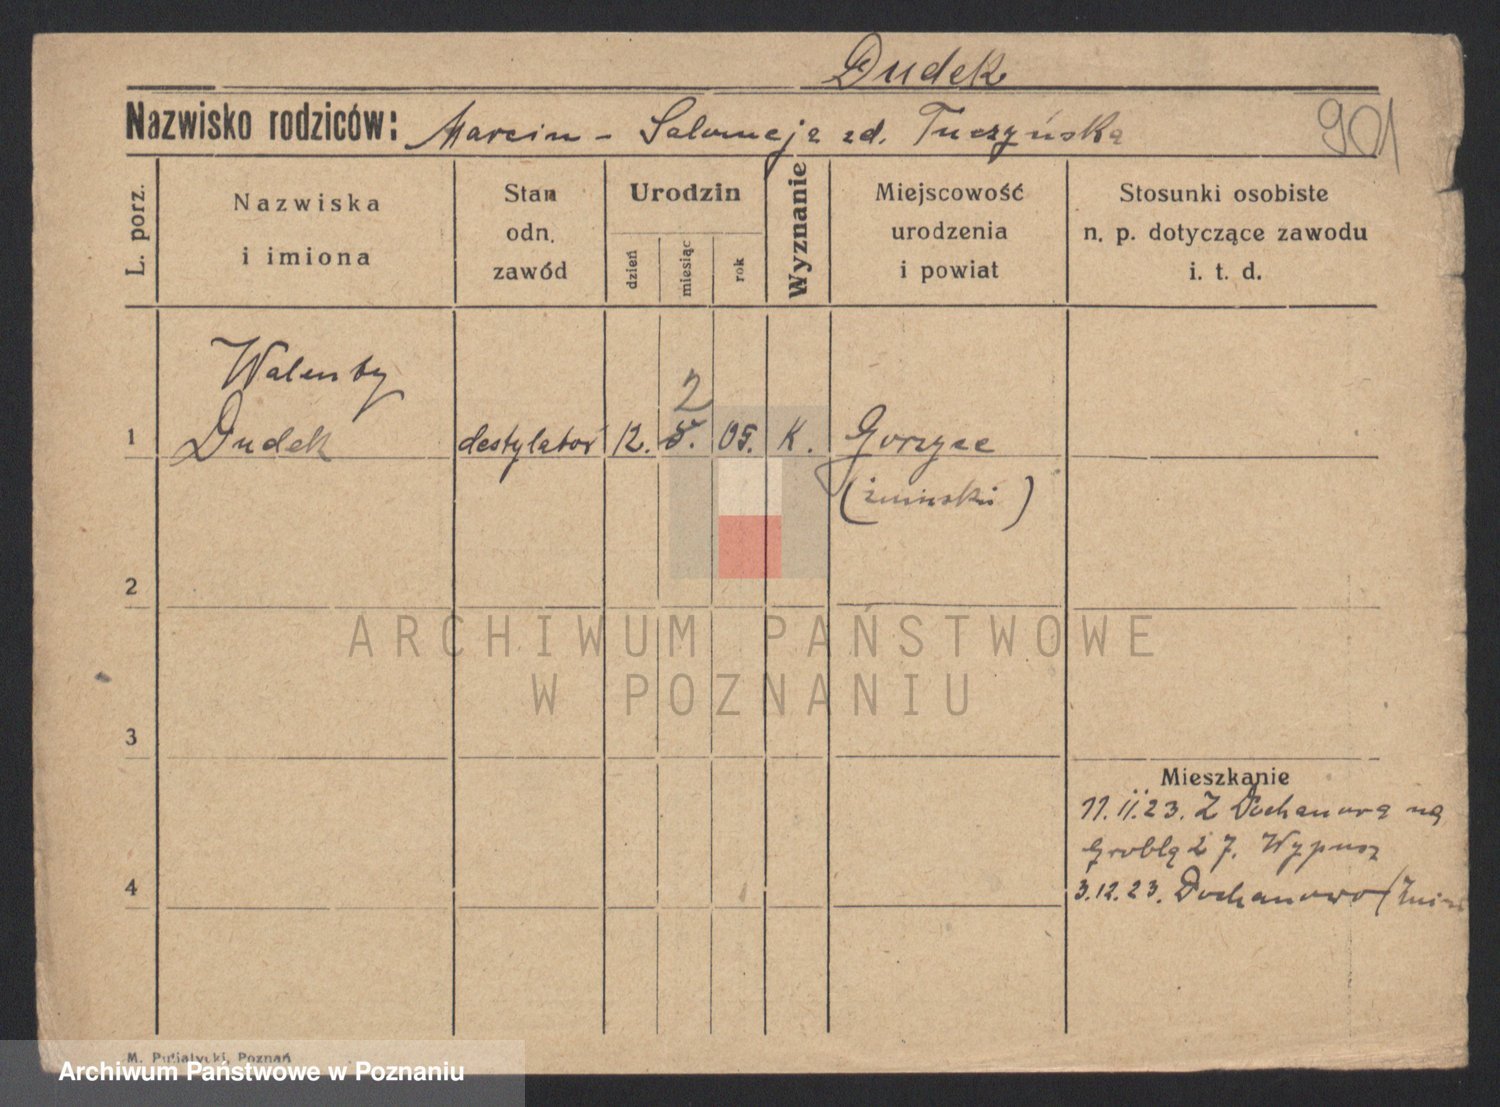 Dudek
Nazwisko rodziców: Marcin - Salomeja zd. Tuczyńska
901
L. porz.
Nazwiska
i imiona
Stan
odn.
zawód
Urodzin
dzień
miesiąc
rok
Wyznanie
Miejscowość
urodzenia
i powiat
Stosunki osobiste
n. p. dotyczące zawodu
i. t. d.
Walenty
2
1 Dudek destylator 12. 05. K. Gorzyce
(żniński)
2
ARCHIWUM PAŃSTWOWE
W POZNANIU
3
Mieszkanie
11.II.23. Z Dochanowa na
Groblą 27. Wypusz
4
3.12.23. Dochanowo (Żnin
M. Putiatycki, Poznań
Archiwum Państwowe w Poznaniu